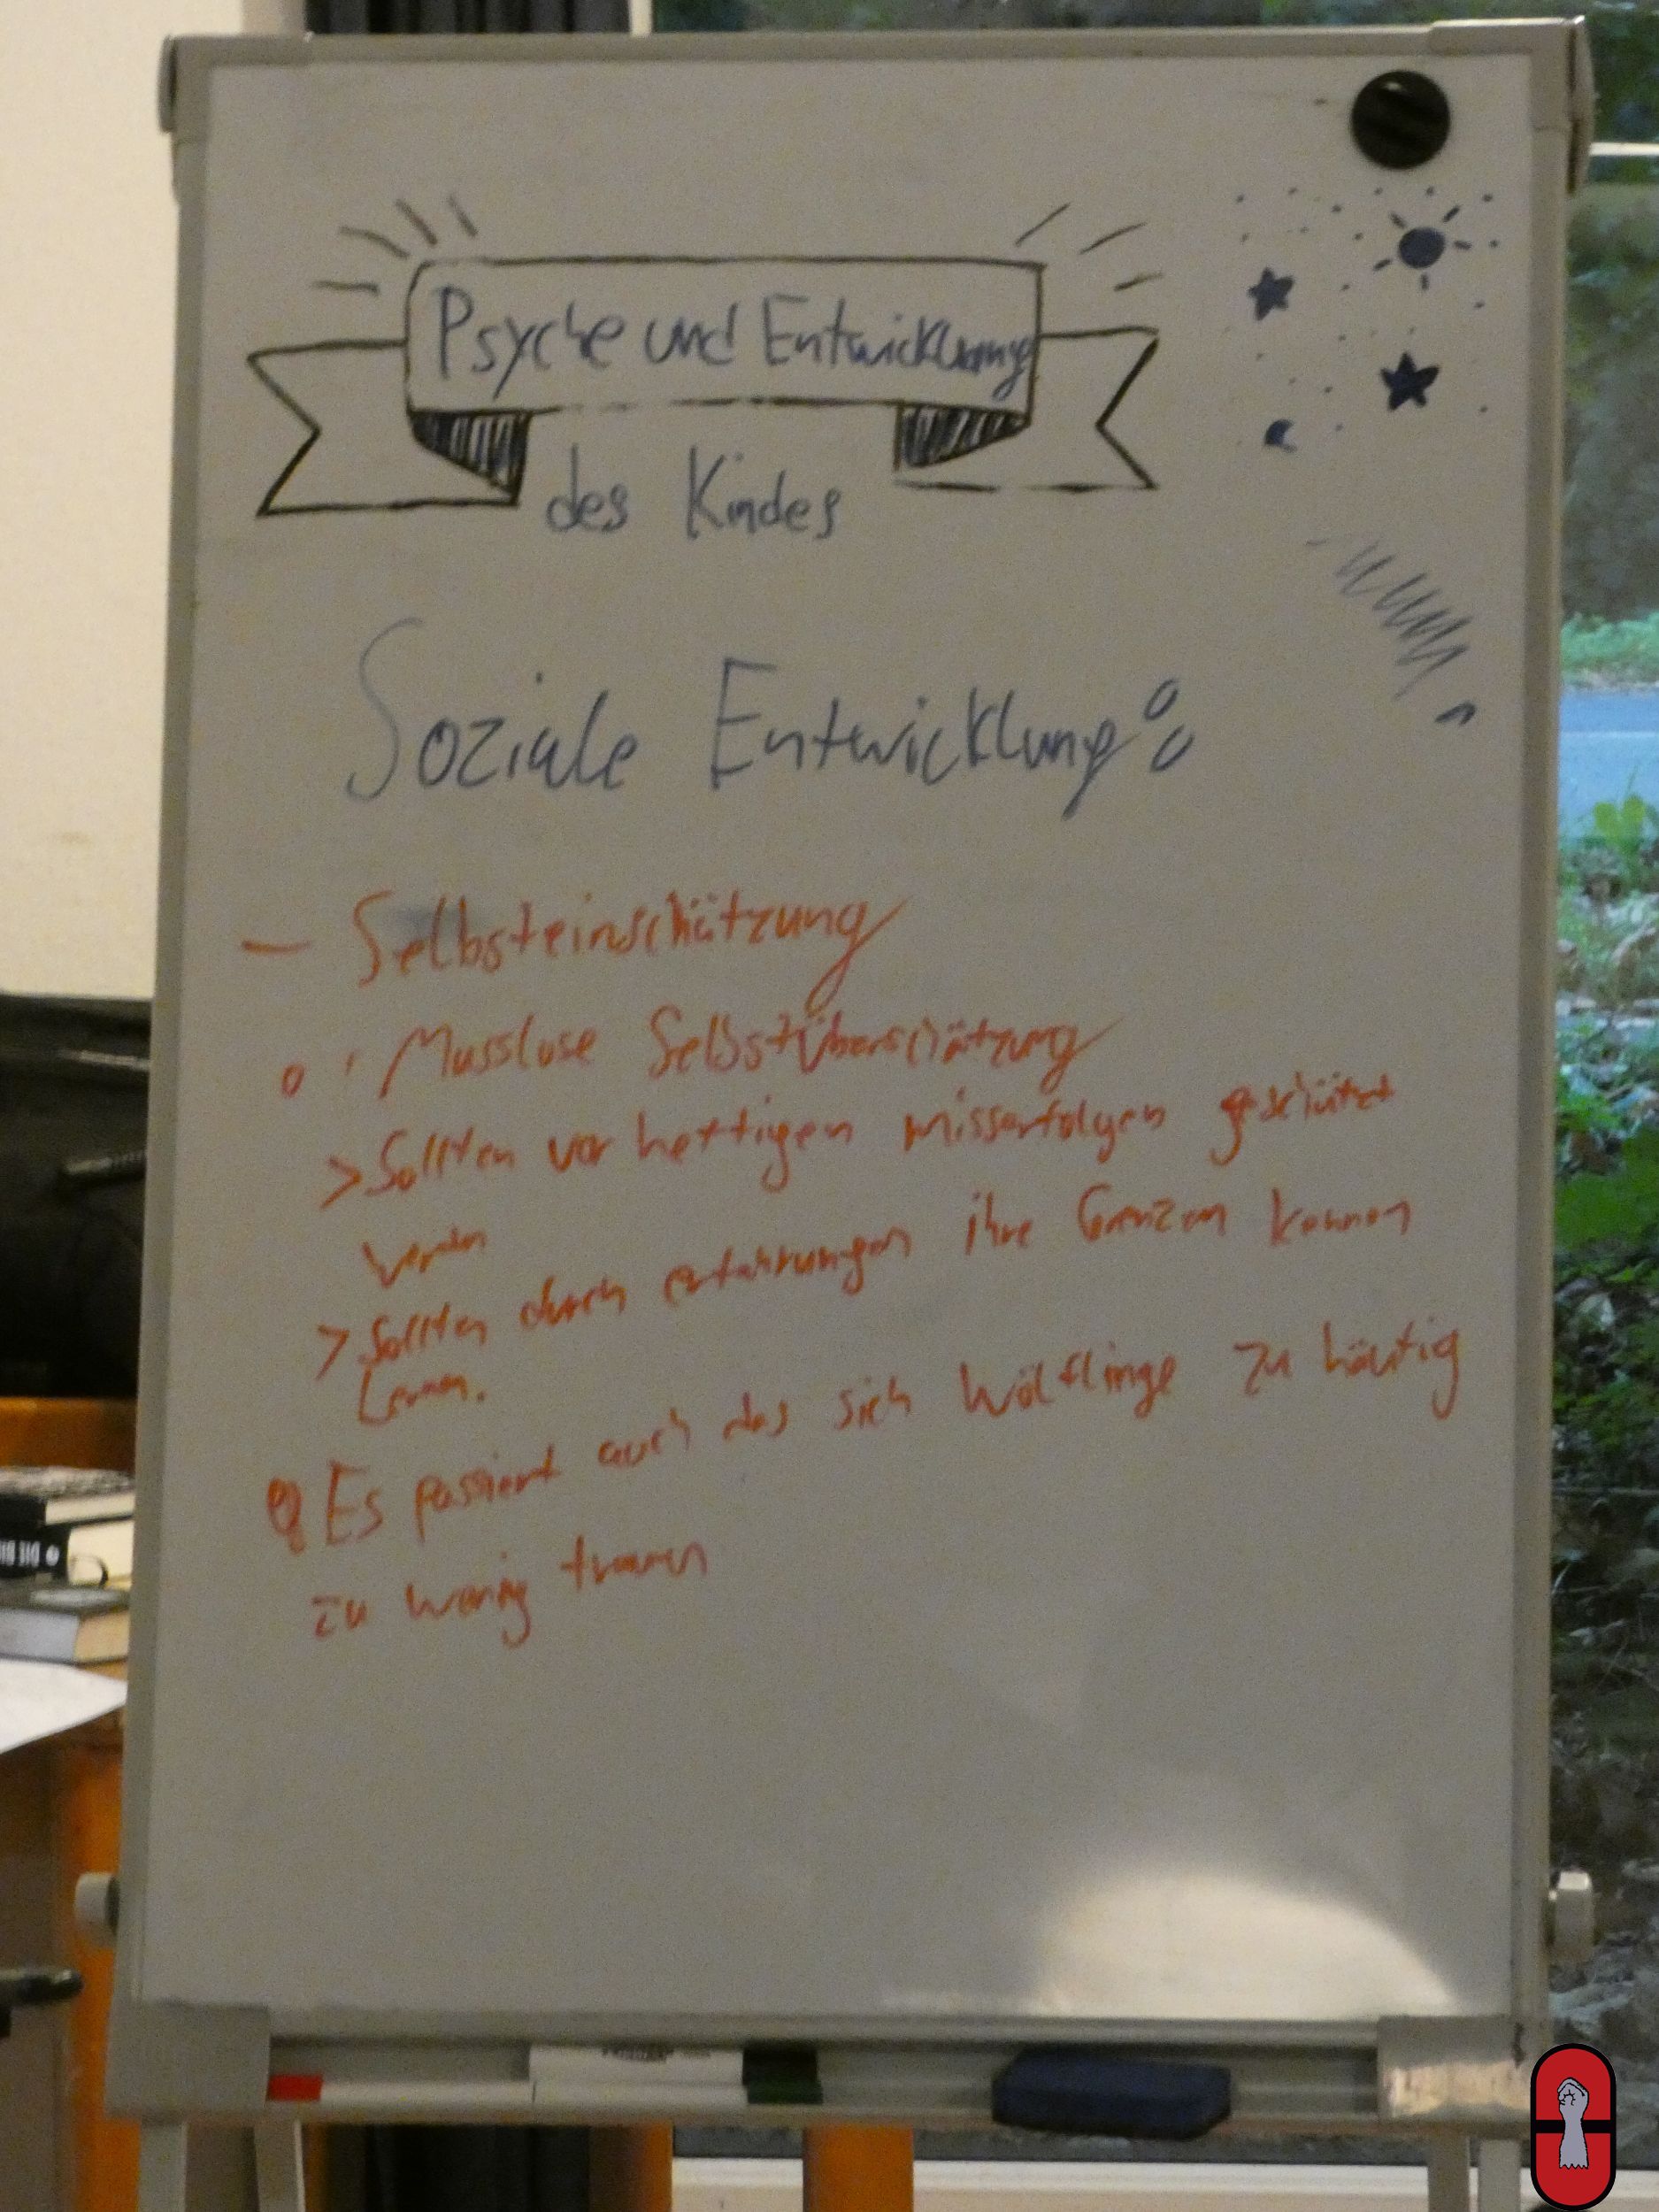 Psyche und Entwicklung
des Kindes
Soziale Entwicklung:
- Selbsteinschätzung
o Masslose Selbstüberschätzung
> Sollten vor heftigen misserfolgen geschützt
werden
> Sollten durch erfahrungen ihre Grenzen kennen
Lernen.
Es passiert auch das sich Wölflinge zu häufig
zu wenig trauen